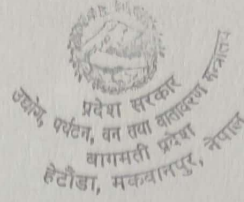 प्रदेश सरकार
उद्योग, पर्यटन, वन तथा वातावरण मन्त्रालय
बागमती प्रदेश
हेटौंडा, मकवानपुर, नेपाल